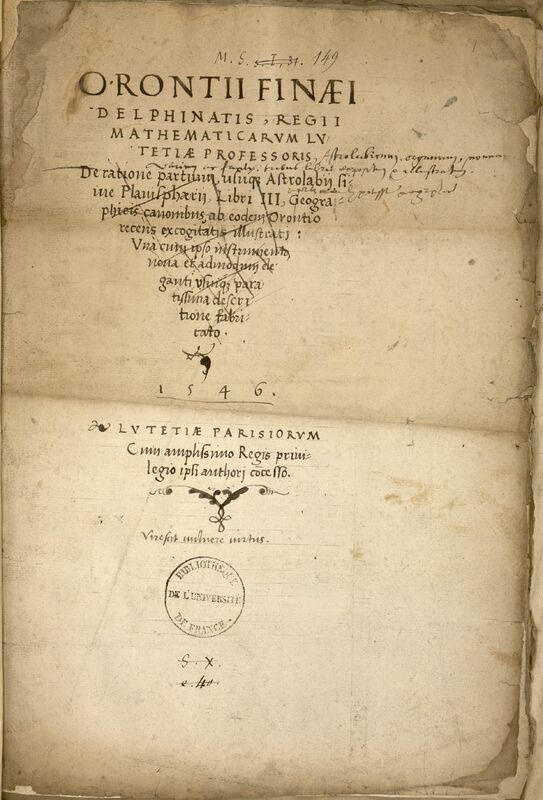 M. S. s. I, 31. 149
O·RONTII FINÆI
DELPHINATIS, REGII
MATHEMATICARVM LV
TETIÆ PROFESSORIS,
Astrolabium, organum,
tribus libris expositum & illustratum
De ratione partium, usuque Astrolabii, si
ue Planisphærii. Libri III, Geogra
phicis canonibus, ab eodem Orontio
recens excogitatis illustrati :
Vna cum ipso instrumento,
noua et admodum ele
ganti, usuique para
tissima descri
tione fabri-
cato.
1546.
LVTETIÆ PARISIORVM
Cum amplissimo Regis priui-
legio ipsi authori cõcesso.
Virescit vulnere virtus.
BIBLIOTHEQUE
DE L'UNIVERSITÉ
DE FRANCE.
S. X.
e. 40